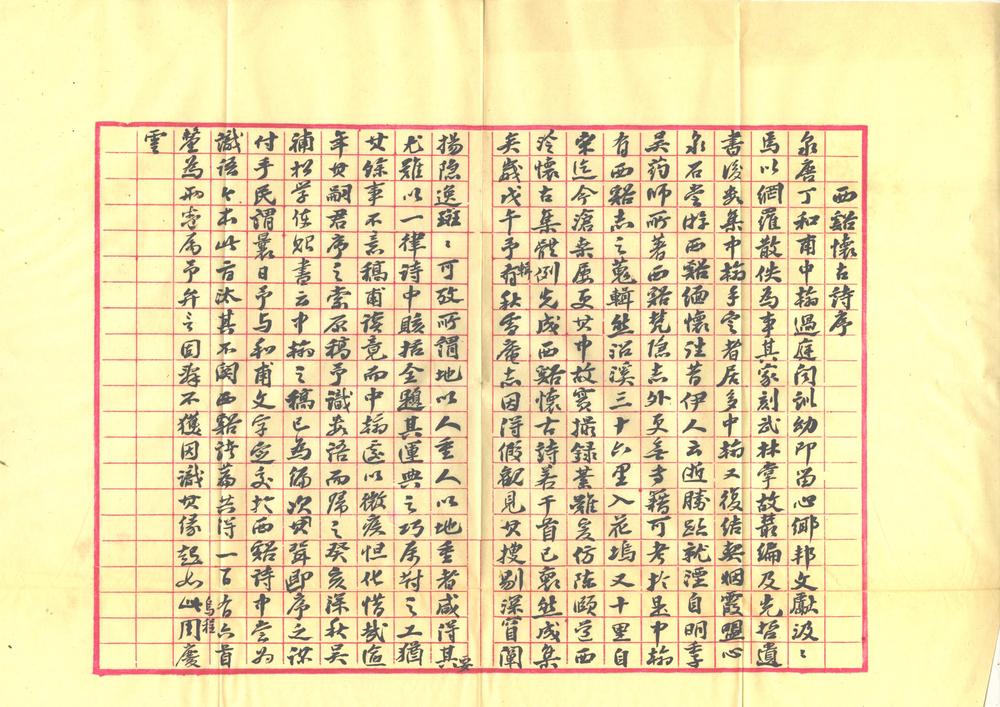 西谿懷古詩序
泉唐丁和甫中翰過庭聞訓幼即留心鄉邦文獻汲〻
焉以網羅散佚為事其家刻武林掌故叢編及先哲遺
書後數集中翰手定者居多中翰又復結契烟霞盟心
泉石嘗游西谿緬懷往昔伊人云逝勝跡就湮自明李
吳药師所著西谿梵隱志外更無專籍可考於是中翰
有西谿志之蒐輯然沿溪三十六里入花塢又十里自
宋迄今滄桑屢更其中故實撮錄綦難爰仿陳頤道西
泠懷古集體例先成西谿懷古詩若干首已裒然成集
矣歲戊午予有輯秋雪庵志因得假觀見其搜剔深窅闡
揚隱逸斑〻可攷所謂地以人重人以地重者咸得其要
尤難以一律詩中賅括全題其運典之巧屬對之工猶
其餘事不意稿甫讀竟而中翰遽以微疾怛化惜哉逾
年其嗣君序之索原稿予識數語而歸之癸亥深秋吳
補松學使貽書云中翰之稿已為編次畀聳即序之詠
付手民謂曩日予与和甫文字定交於西谿詩中嘗为
識語今本此旨汰其不関西谿諸篇共得一百有六首
釐為兩卷属予弁言因辭不獲因識其緣起如此烏程周慶
雲